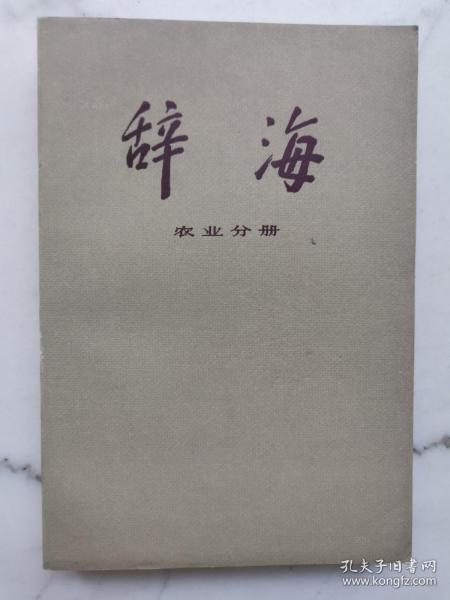 辞海
农业分册
孔夫子旧书网
www.kongfz.com